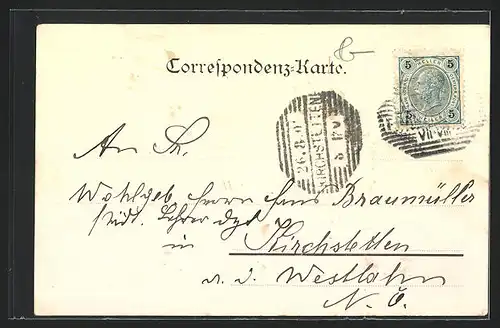 8-
Correspondenz-Karte.
5 5
5 5
26.8.0
KIRCHSTETTEN
An Sr.
Wohlgeb. Herrn Hans Braumüller
städt. Lehrer dzt
in
Kirchstetten
a. d. Westbahn
N. Ö.